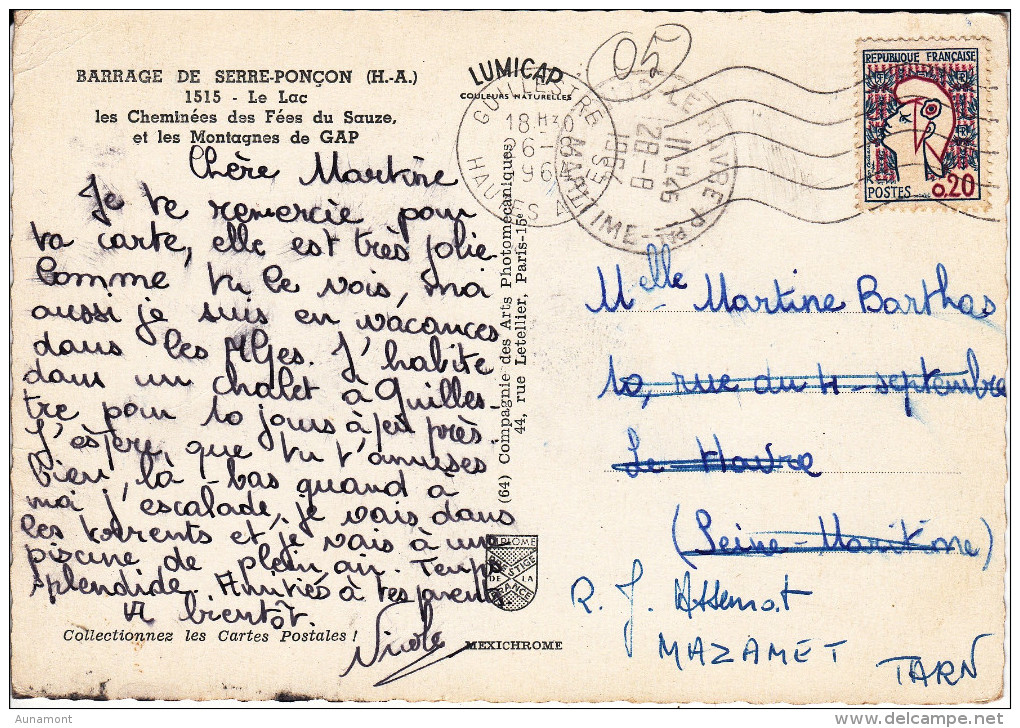 BARRAGE DE SERRE-PONÇON (H.-A.)
1515 - Le Lac
les Cheminées des Fées du Sauze,
et les Montagnes de GAP
LUMICAP
COULEURS NATURELLES
05
GUILLESTRE
18H30
6-8
196
HAUTES A
LE HAVRE
28-8
MARITIME
REPUBLIQUE FRANÇAISE
POSTES 0.20
Chère Martine
Je te remercie pour
ta carte, elle est très jolie
Comme tu le vois, moi
aussi je suis en vacances
dans les Alpes. J'habite
dans un chalet à Guilles-
tre pour 10 jours à peu près.
J'espère, que tu t'amuses
bien, là-bas quand à
moi j'escalade, je vais dans
les torrents et je vais à une
piscine de plein air. Temps
splendide. Amitiés à tes parents
A bientôt.
Nicole
Collectionnez les Cartes Postales !
(64) Compagnie des Arts Photomécaniques
44, rue Letellier, Paris-15e
DIPLOME
PRESTIGE
DE LA
FRANCE
MEXICHROME
Melle Martine Barthas
10, rue du 4-septembre
Le Havre
(Seine-Maritime)
R. J. Assemat
MAZAMET
TARN
Aunamont
delcampe.net